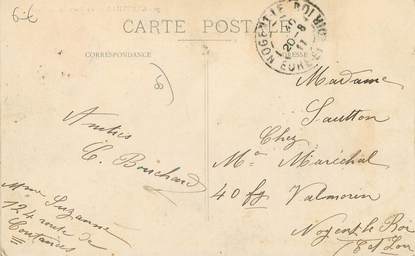 6€
CARTE POSTALE
CORRESPONDANCE
NOGENT-LE-ROI
20-8
11
EURE-ET
8
Madame
Sautton
Chez
Mr Maréchal
40 fg Valmorin
Nogent le Roi
Eet Loir
Amitiés
C. Bouchard
Mme Suzanne
124 route de
Coutances